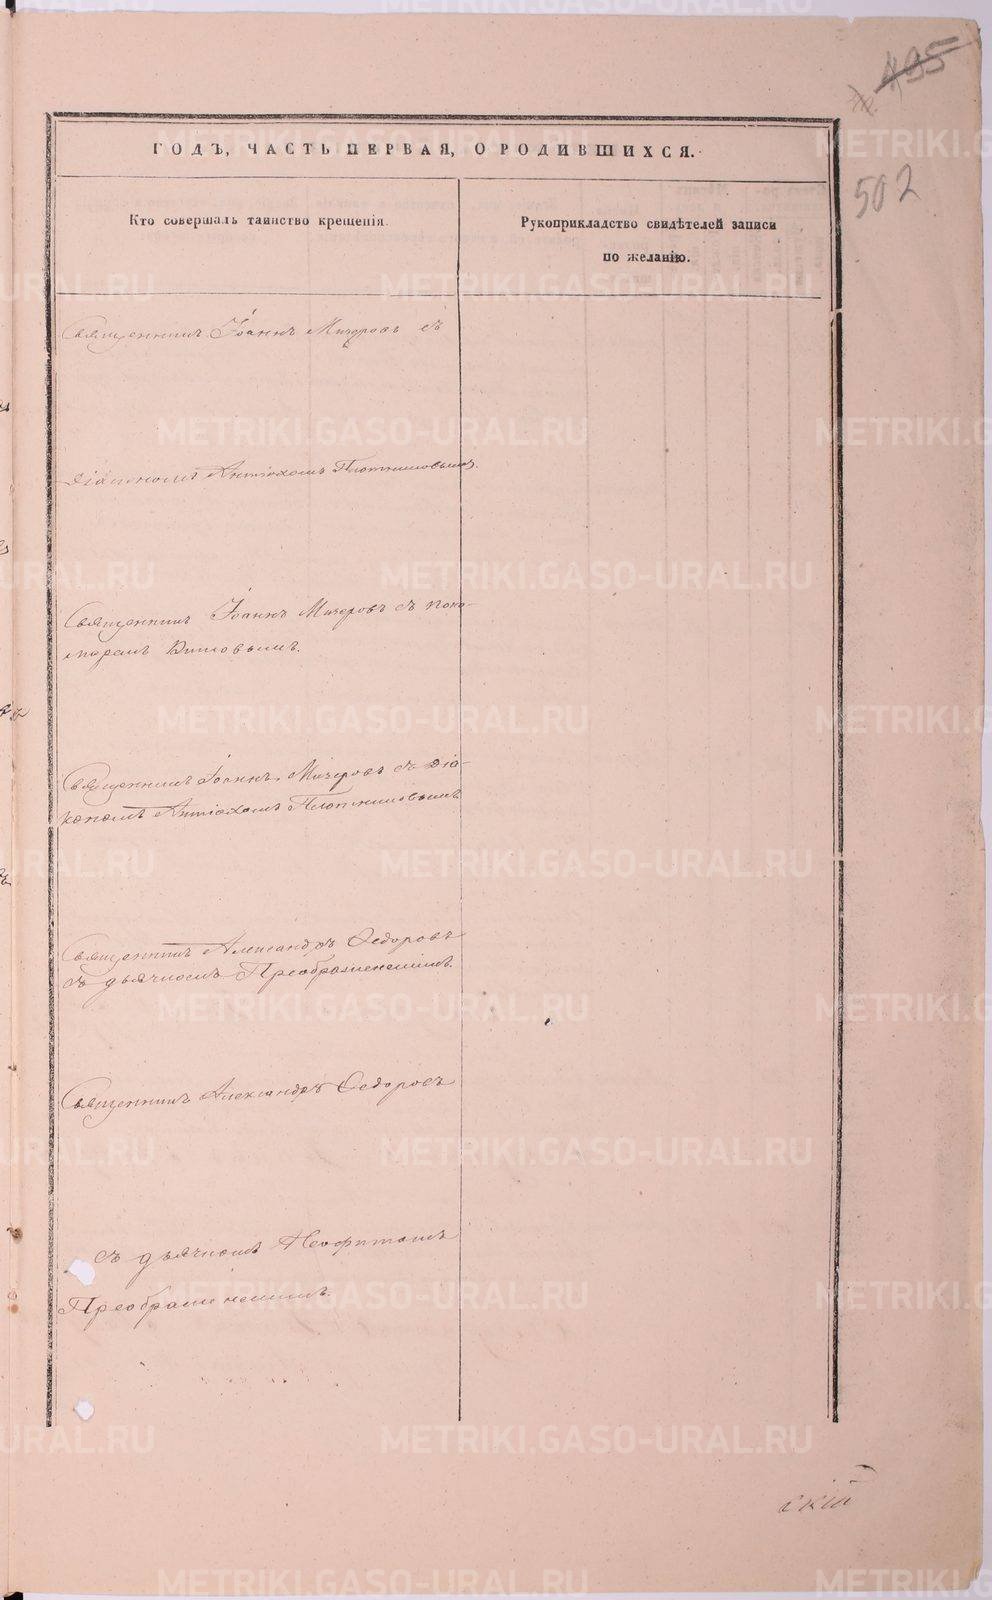 495
502
ГОДЪ, ЧАСТЬ ПЕРВАЯ, О РОДИВШИХСЯ.
Кто совершалъ таинство крещенія.
Рукоприкладство свидѣтелей записи
по желанію.
Священникъ Іоаннъ Мичуровъ съ
діакономъ Антіохомъ Плотниковымъ.
Священникъ Іоаннъ Мичуровъ съ поно-
маремъ
Священникъ Іоаннъ Мичуровъ съ діа-
кономъ Антіохомъ Плотниковымъ
Священникъ Александръ Ѳедоровъ
съ дьячкомъ Преображенскимъ.
Священникъ Александръ Ѳедоровъ
съ дьячкомъ Неофитомъ
Преображенскимъ.
скій
METRIKI.GASO-URAL.RU